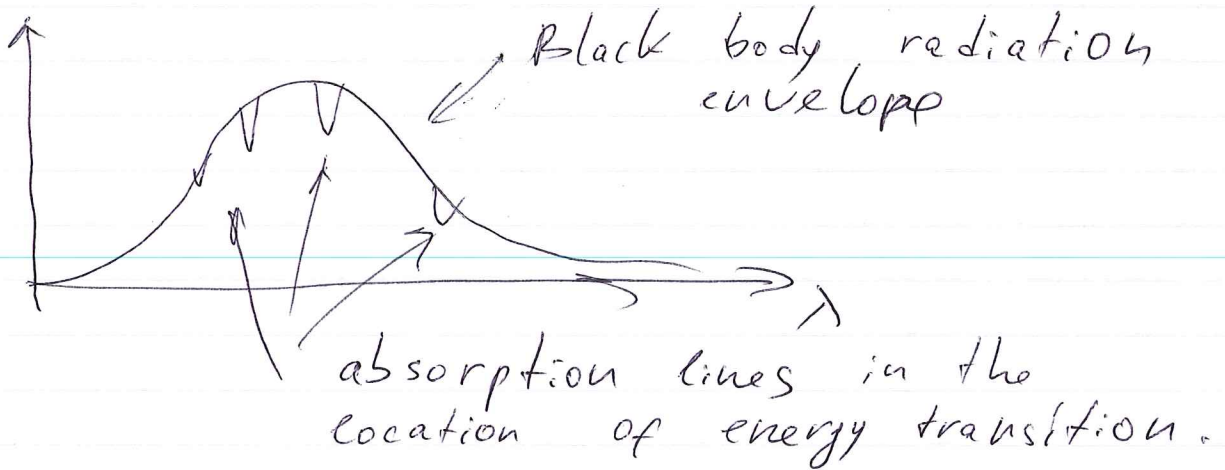 Black body radiation
envelope
λ
absorption lines in the
location of energy transition.